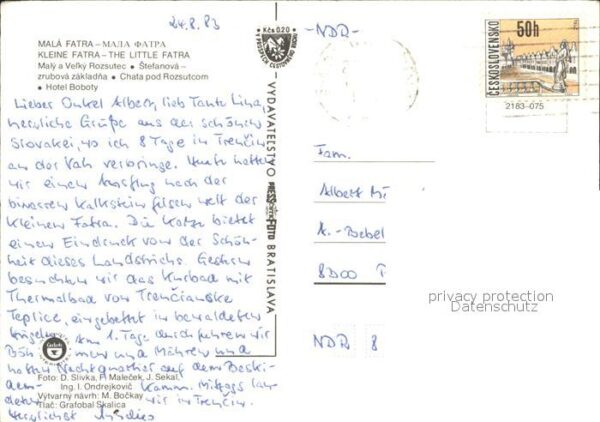 24.8.83
MALÁ FATRA – МАЛА ФАТРА
KLEINE FATRA – THE LITTLE FATRA
Malý a Veľký Rozsutec • Štefanová –
zrubová základňa • Chata pod Rozsutcom •
• Hotel Boboty
Lieber Onkel Albert, lieb Tante Lina,
herzliche Grüße aus der schönen
Slovakei, wo ich 8 Tage in Trenčin
an der Vah verbringe. Heute hatten
wir einen Ausflug nach der
bizarren Kalksteinfelsenwelt der
Kleinen Fatra. Die Karte bietet
einen Eindruck von der Schön-
heit dieses Landstrichs. Gestern
besuchten wir das Kurbad mit
Thermalbad von Trenčianske
Teplice, eingebettet in bewaldeten
Am 1. Tage durchfuhren wir
Böhmen und Mähren und
hatten Nachtquartier auf dem Beski-
den- Kamm. Mittags lan-
deten wir in Trenčin.
Herzlichst
Foto: D. Slivka, P. Maleček, J. Sekal,
Ing. I. Ondrejkovič
Výtvarný návrh: M. Bočkay
Tlač: Grafobal Skalica
Kčs 0,20
VYDAVATEĽSTVO
PRESSFOTO
BRATISLAVA
-NDR-
ČESKOSLOVENSKO
50h
2183-075
Fam.
Albert
A.-Bebel
8000
NDR 8
privacy protection
Datenschutz